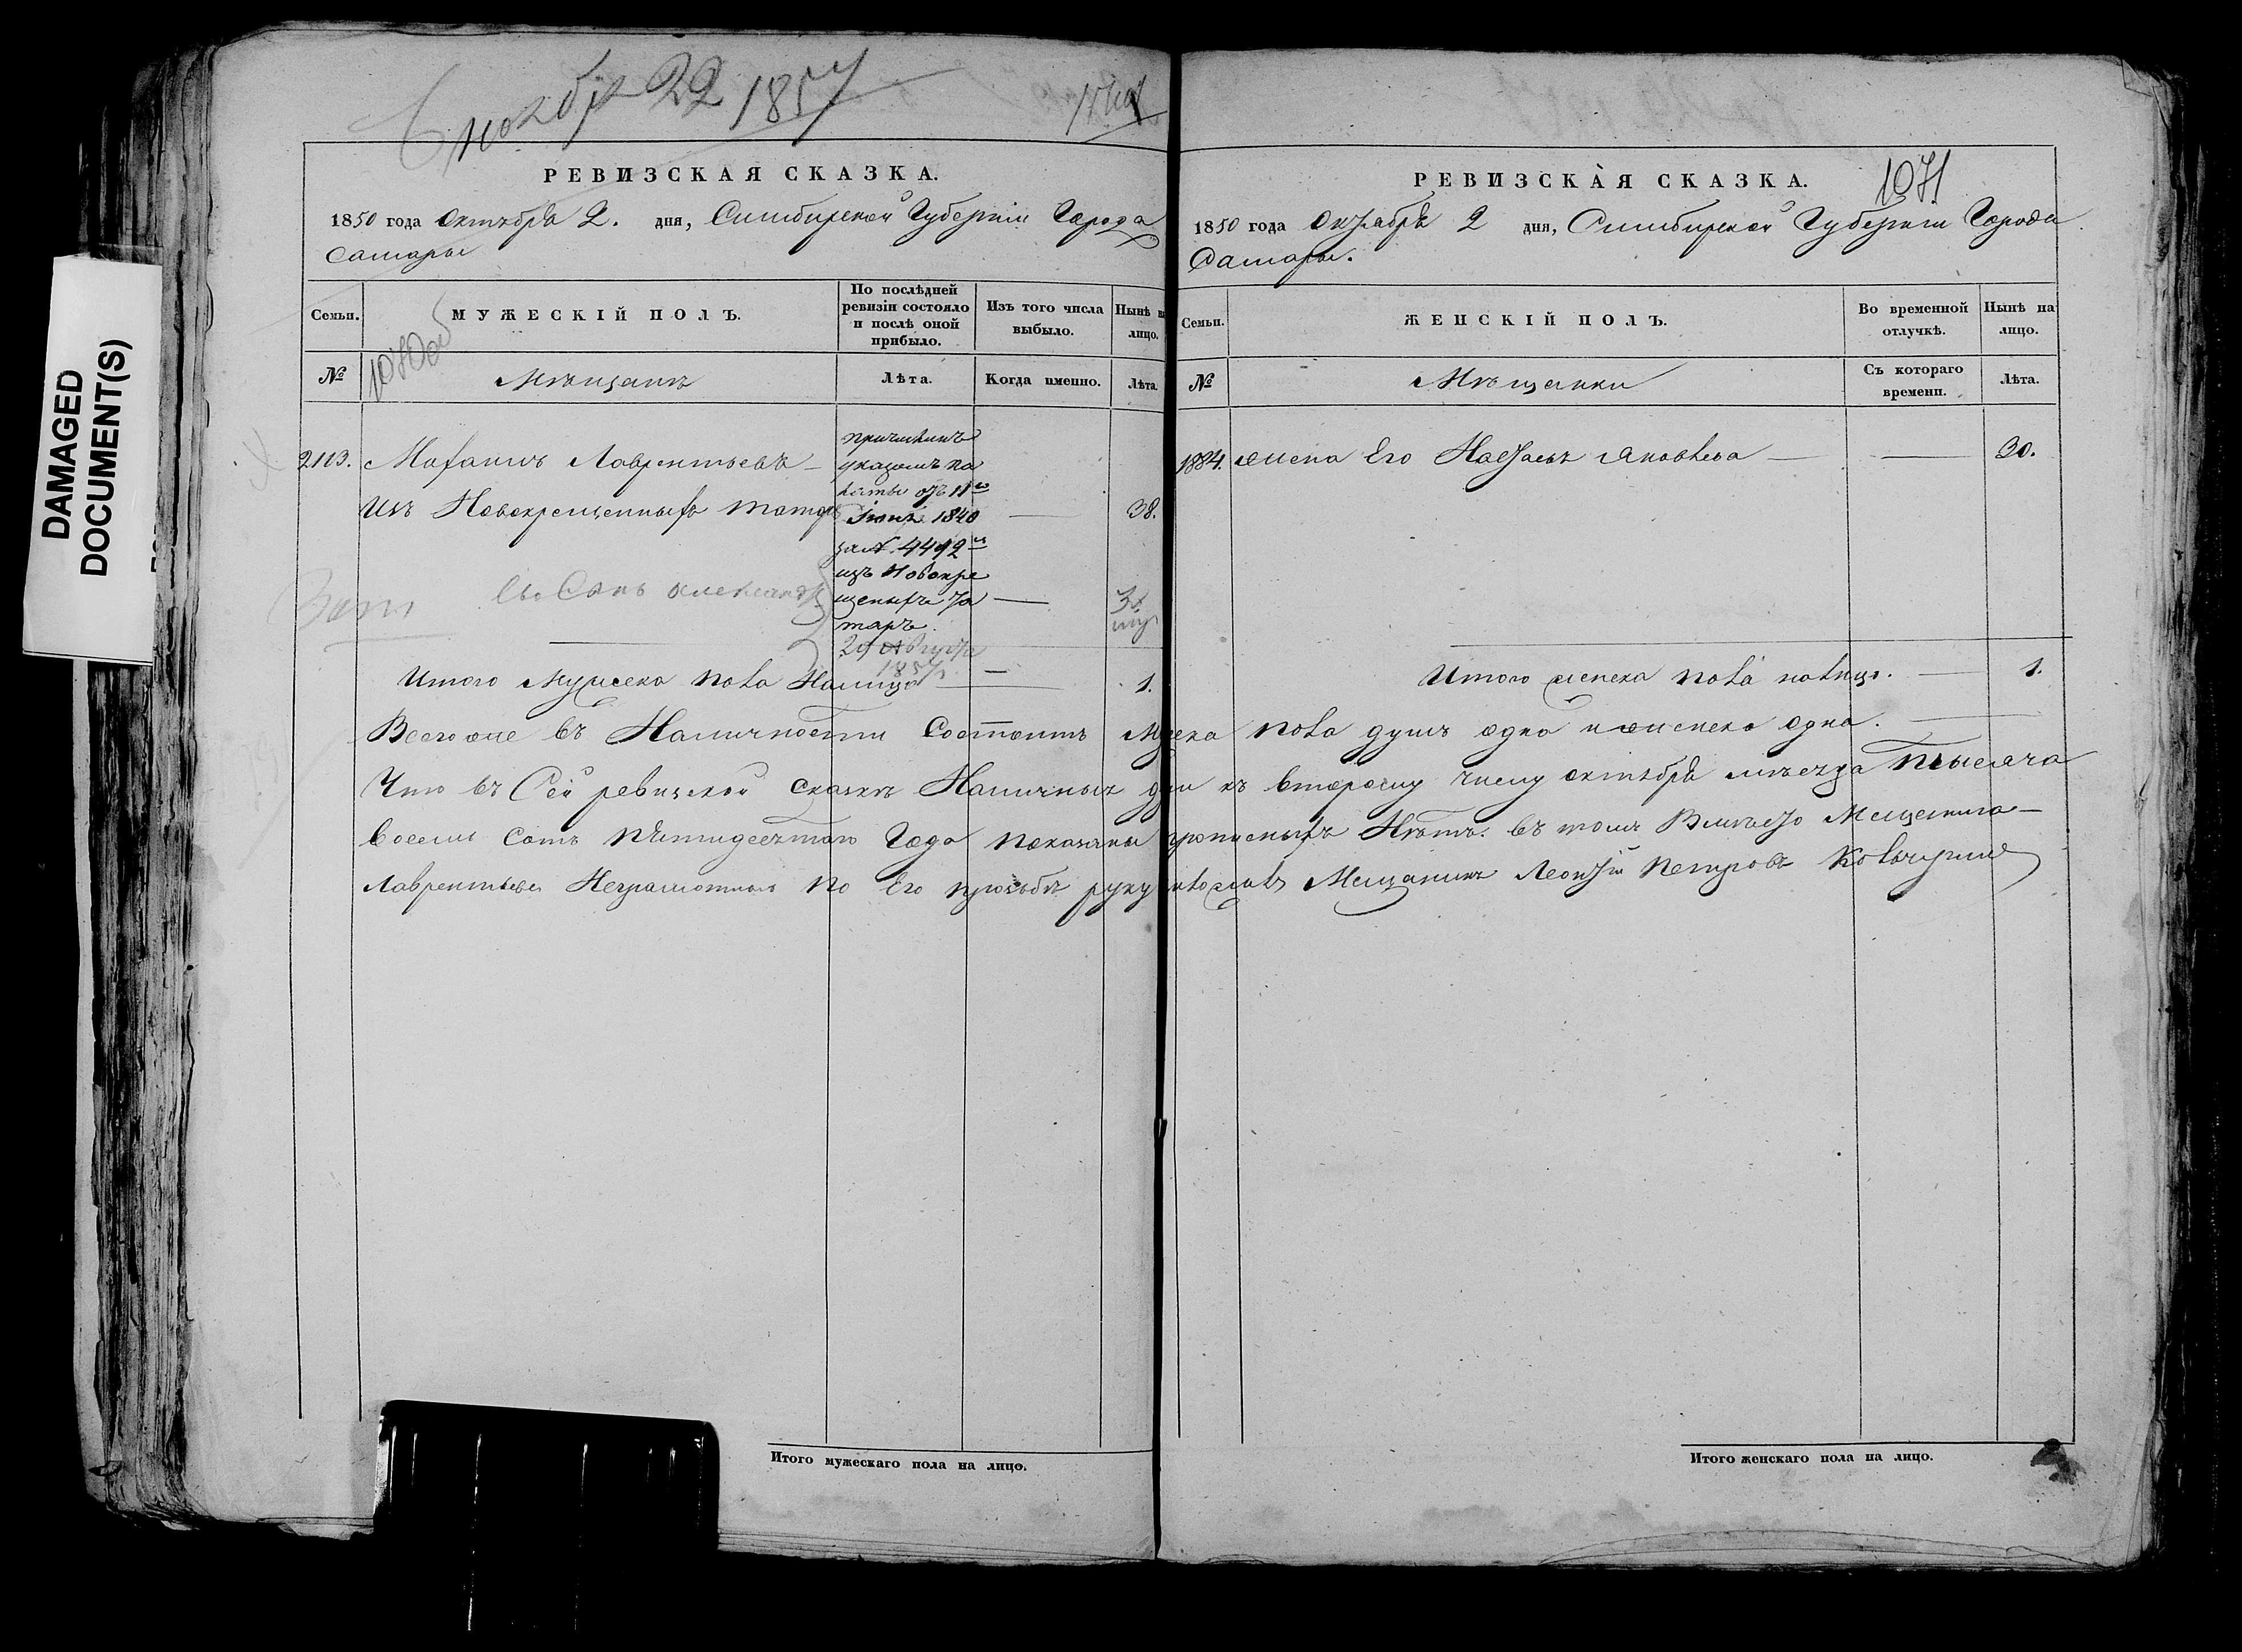 ноября 22 1857
РЕВИЗСКАЯ СКАЗКА.
1850 года Октября 2. дня, Симбирской Губернии Города
Самары
Семьи.
МУЖЕСКІЙ ПОЛЪ.
По послѣдней
ревизіи состояло
и послѣ оной
прибыло.
Изъ того числа
выбыло.
Нынѣ н
лицо.
№
1070об
Мѣщанъ
Лѣта.
Когда именно.
Лѣта.
2113. Лаврентьевъ
Изъ Новокрещенныхъ татаръ
38.
причисленъ
указомъ па
латы отъ 11го
Іюня 1840
за № 4492м
изъ Новокре
щеныхъ та
таръ.
Сынъ Александръ
29 августа
1857
Итого Мужеска пола Налицо 1.
РЕВИЗСКАЯ СКАЗКА.
1071
1850 года Октября 2 дня, Симбирской Губернии Города
Самары.
Семьи.
ЖЕНСКІЙ ПОЛЪ.
Во временной
отлучкѣ.
Нынѣ на
лицо.
№
Мѣщанки
Съ котораго
времени.
Лѣта.
1884. жена Его Настасья Яковлева 30.
Итого женска пола налицо. 1.
Всего же въ Наличности Состоитъ Муска пола душъ одна и женска одна.
Что въ Сей ревизской сказке Наличныхъ душ къ второму числу октября месеца тысяча
восемь сотъ пятидесятого Года показаны прописныхъ Нетъ. въ томъ Вместо Мещенина
Лаврентьева Неграмотного по Его прозьбе руку приложилъ Мещанинъ Петровъ
Итого мужескаго пола на лицо.
Итого женскаго пола на лицо.
DAMAGED
DOCUMENT(S)